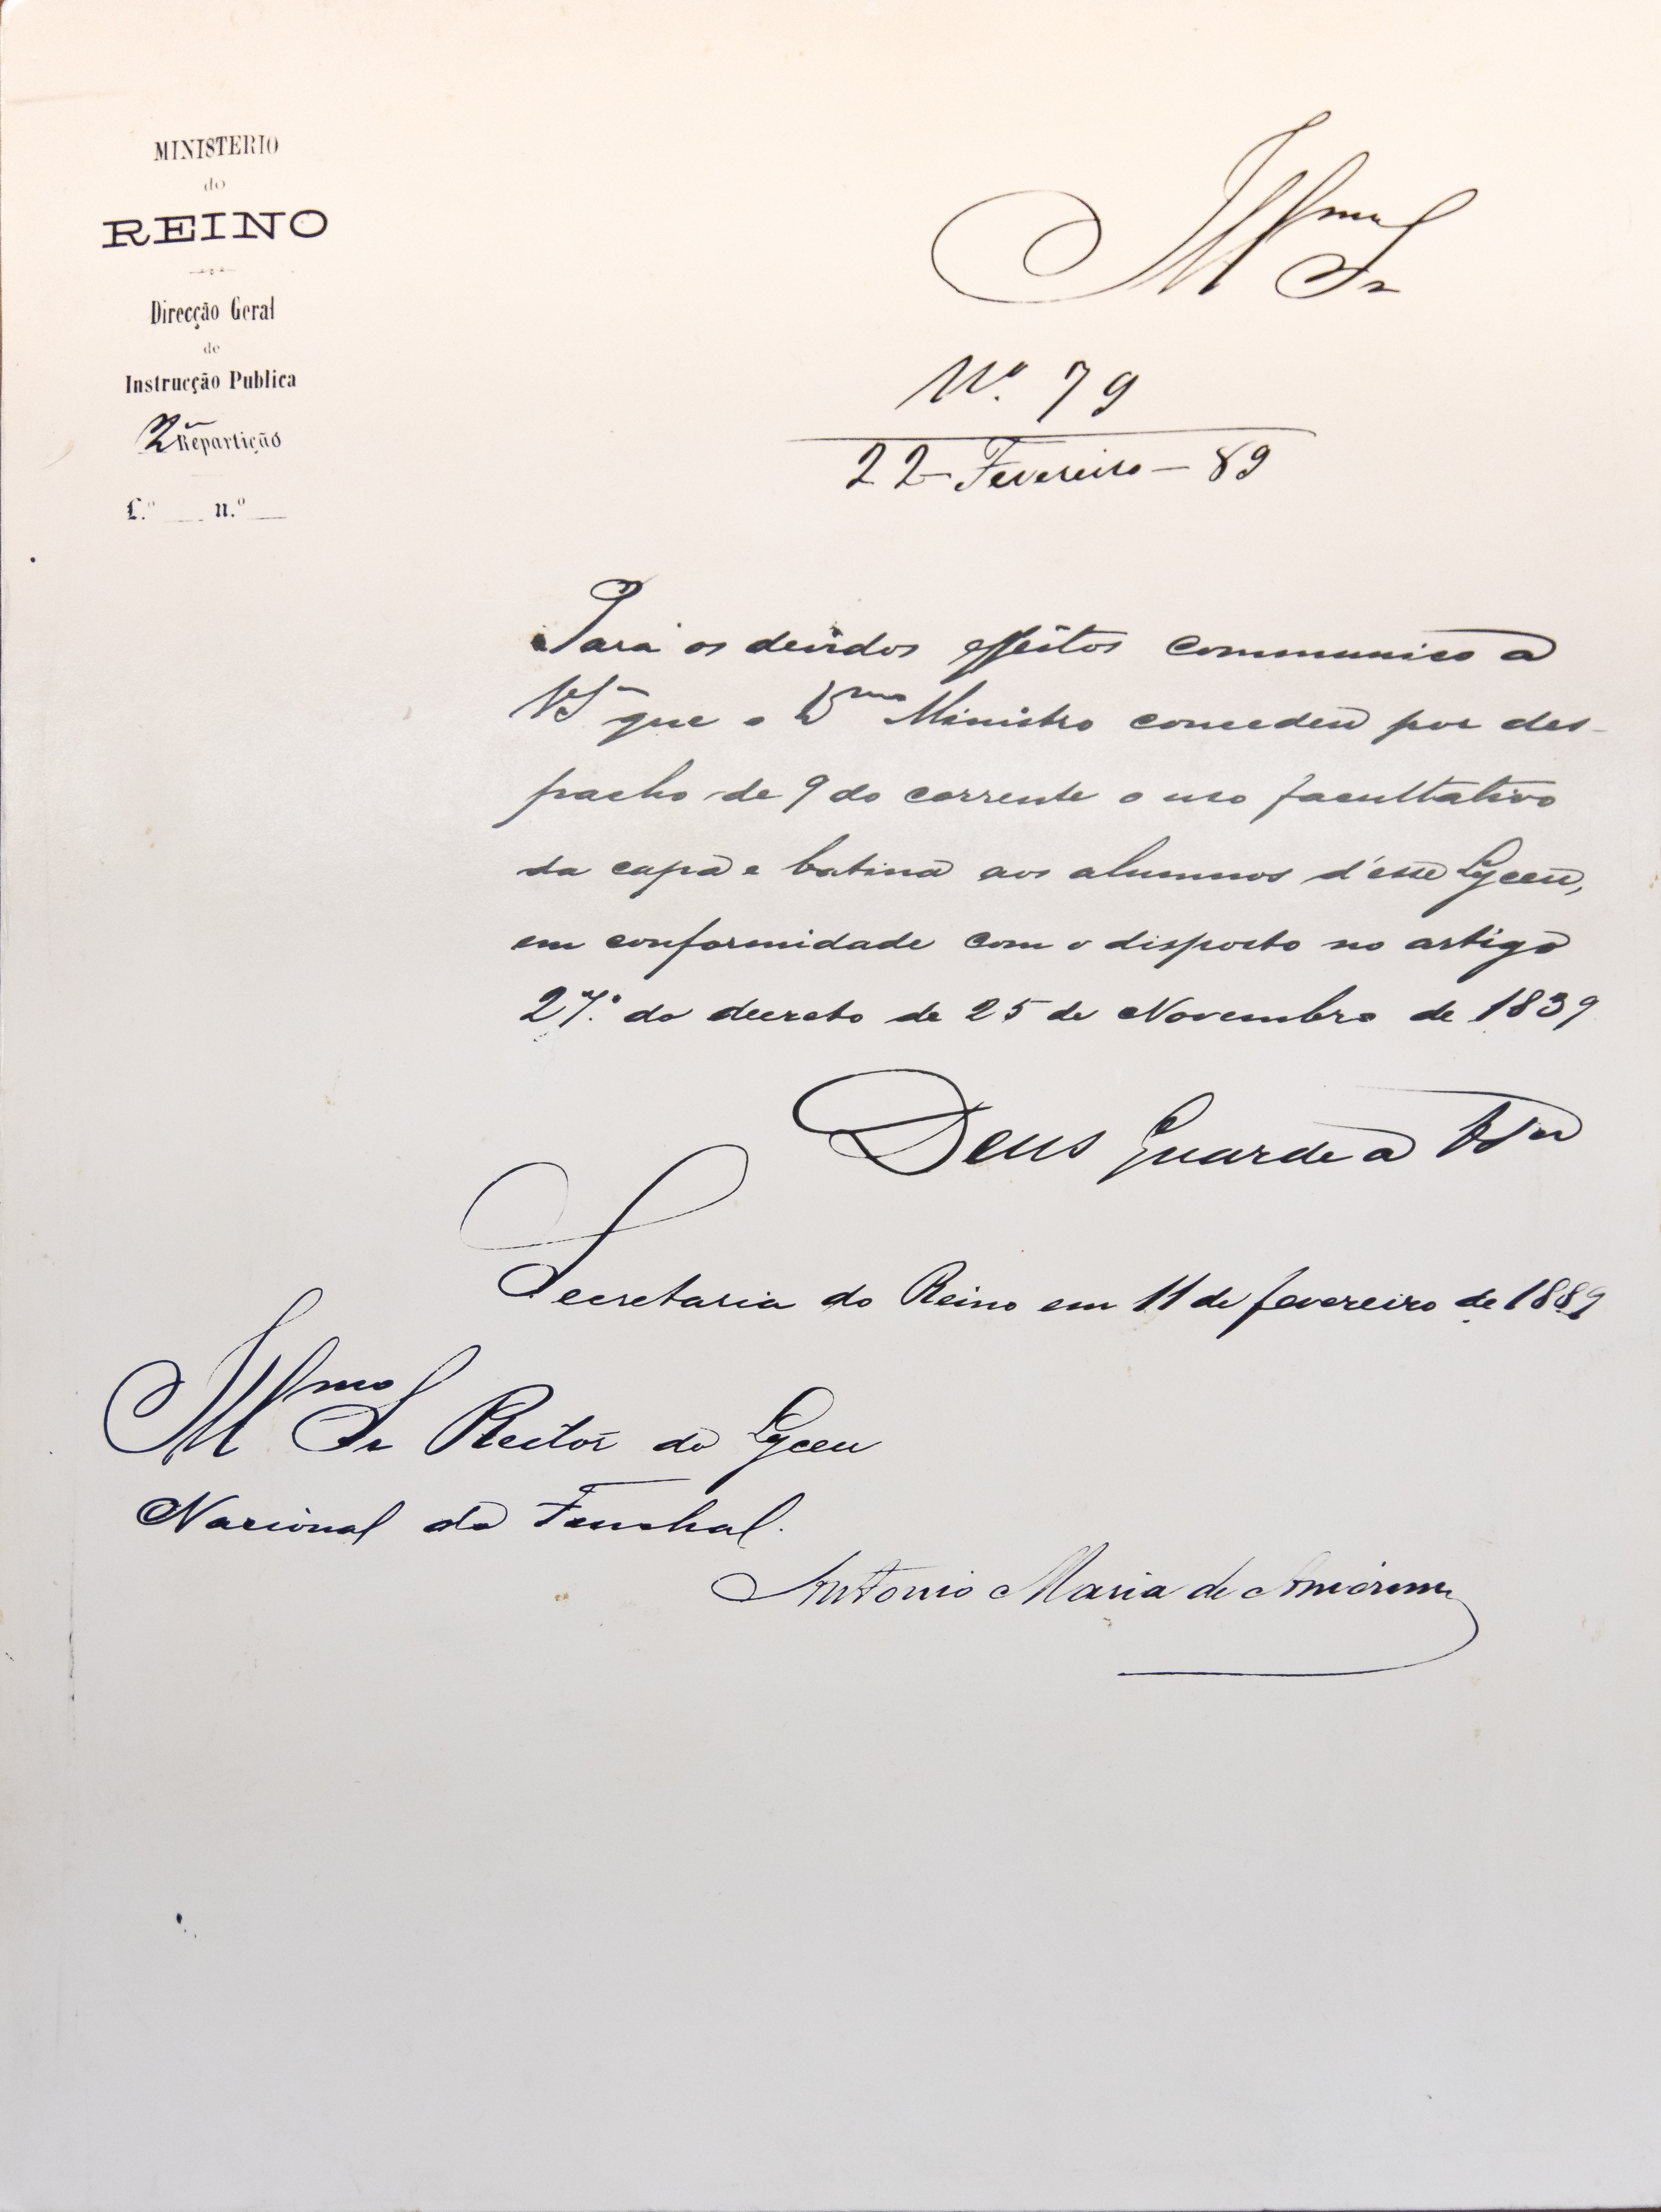 MINISTERIO
do
REINO
Direcção Geral
de
Instrucção Publica
2ª Repartição
L.º ___ n.º ___
Illmo Sr
Nº. 79
22 - Fevereiro - 89
Para os devidos effeitos communico a
VSª que o Exmo Ministro concedeu por des-
pacho de 9 do corrente o uso facultativo
da capa e batina aos alumnos d'esse Lyceu,
em conformidade com o disposto no artigo
27.º do decreto de 25 de Novembro de 1839
Deus Guarde a VSª
Secretaria do Reino em 11 de fevereiro de 1889
Illmo Sr Reitor do Lyceu
Nacional do Funchal.
Antonio Maria de Amorim